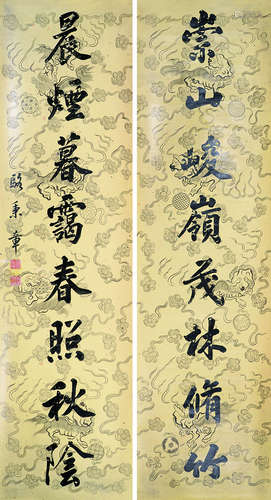 崇山峻嶺茂林脩竹
晨煙暮靄春照秋陰
駱秉章